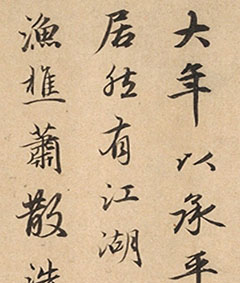 大年以承平
居然有江湖
漁樵蕭散